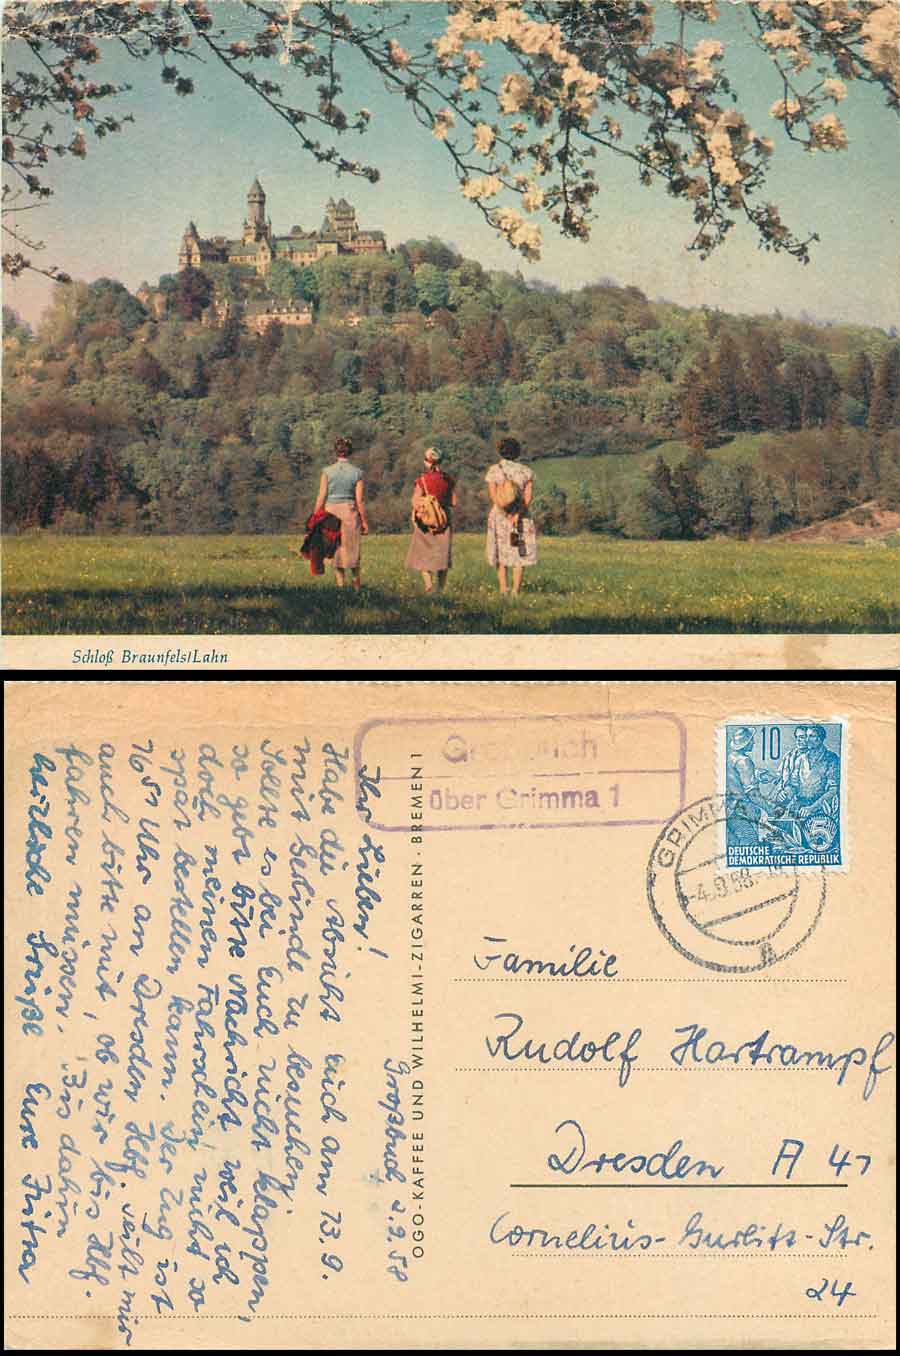 Schloß Braunfels/Lahn
über Grimma 1
10
5
DEUTSCHE
DEMOKRATISCHE REPUBLIK
GRIMMA
-4.9.58.
a
OGO-KAFFEE UND WILHELMI-ZIGARREN · BREMEN 1
Familie
Rudolf Hartrampf
Dresden A 47
Cornelius-Gurlitt-Str.
24
2.9.58
Ihr Lieben!
Habe die Absicht euch am 13.9.
mit Gelinde zu besuchen,
Sollte es bei Euch nicht klappen,
so gebt bitte Nachricht weil ich
doch meinen Fahrschein nicht so
spät bestellen kann. Der Zug ist
1651 Uhr an Dresden Hbf. Teilt mir
auch bitte mit, ob wir bis Hbf.
fahren müssen. Bis dahin
herzliche Grüße Eure